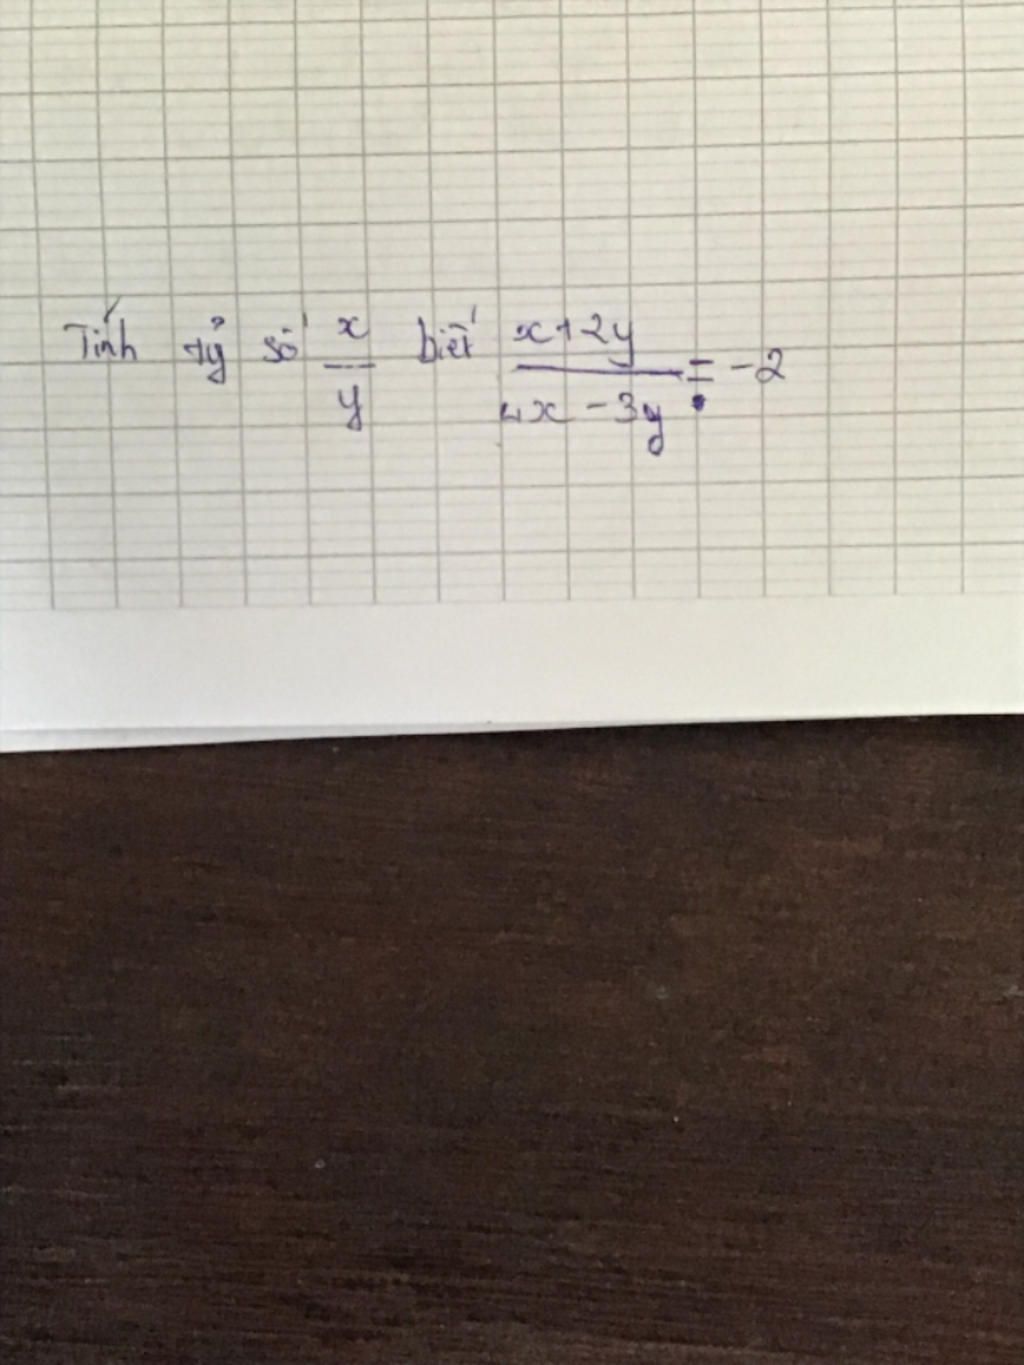 Tính tỷ số x/y biết x+2y/4x-3y = -2